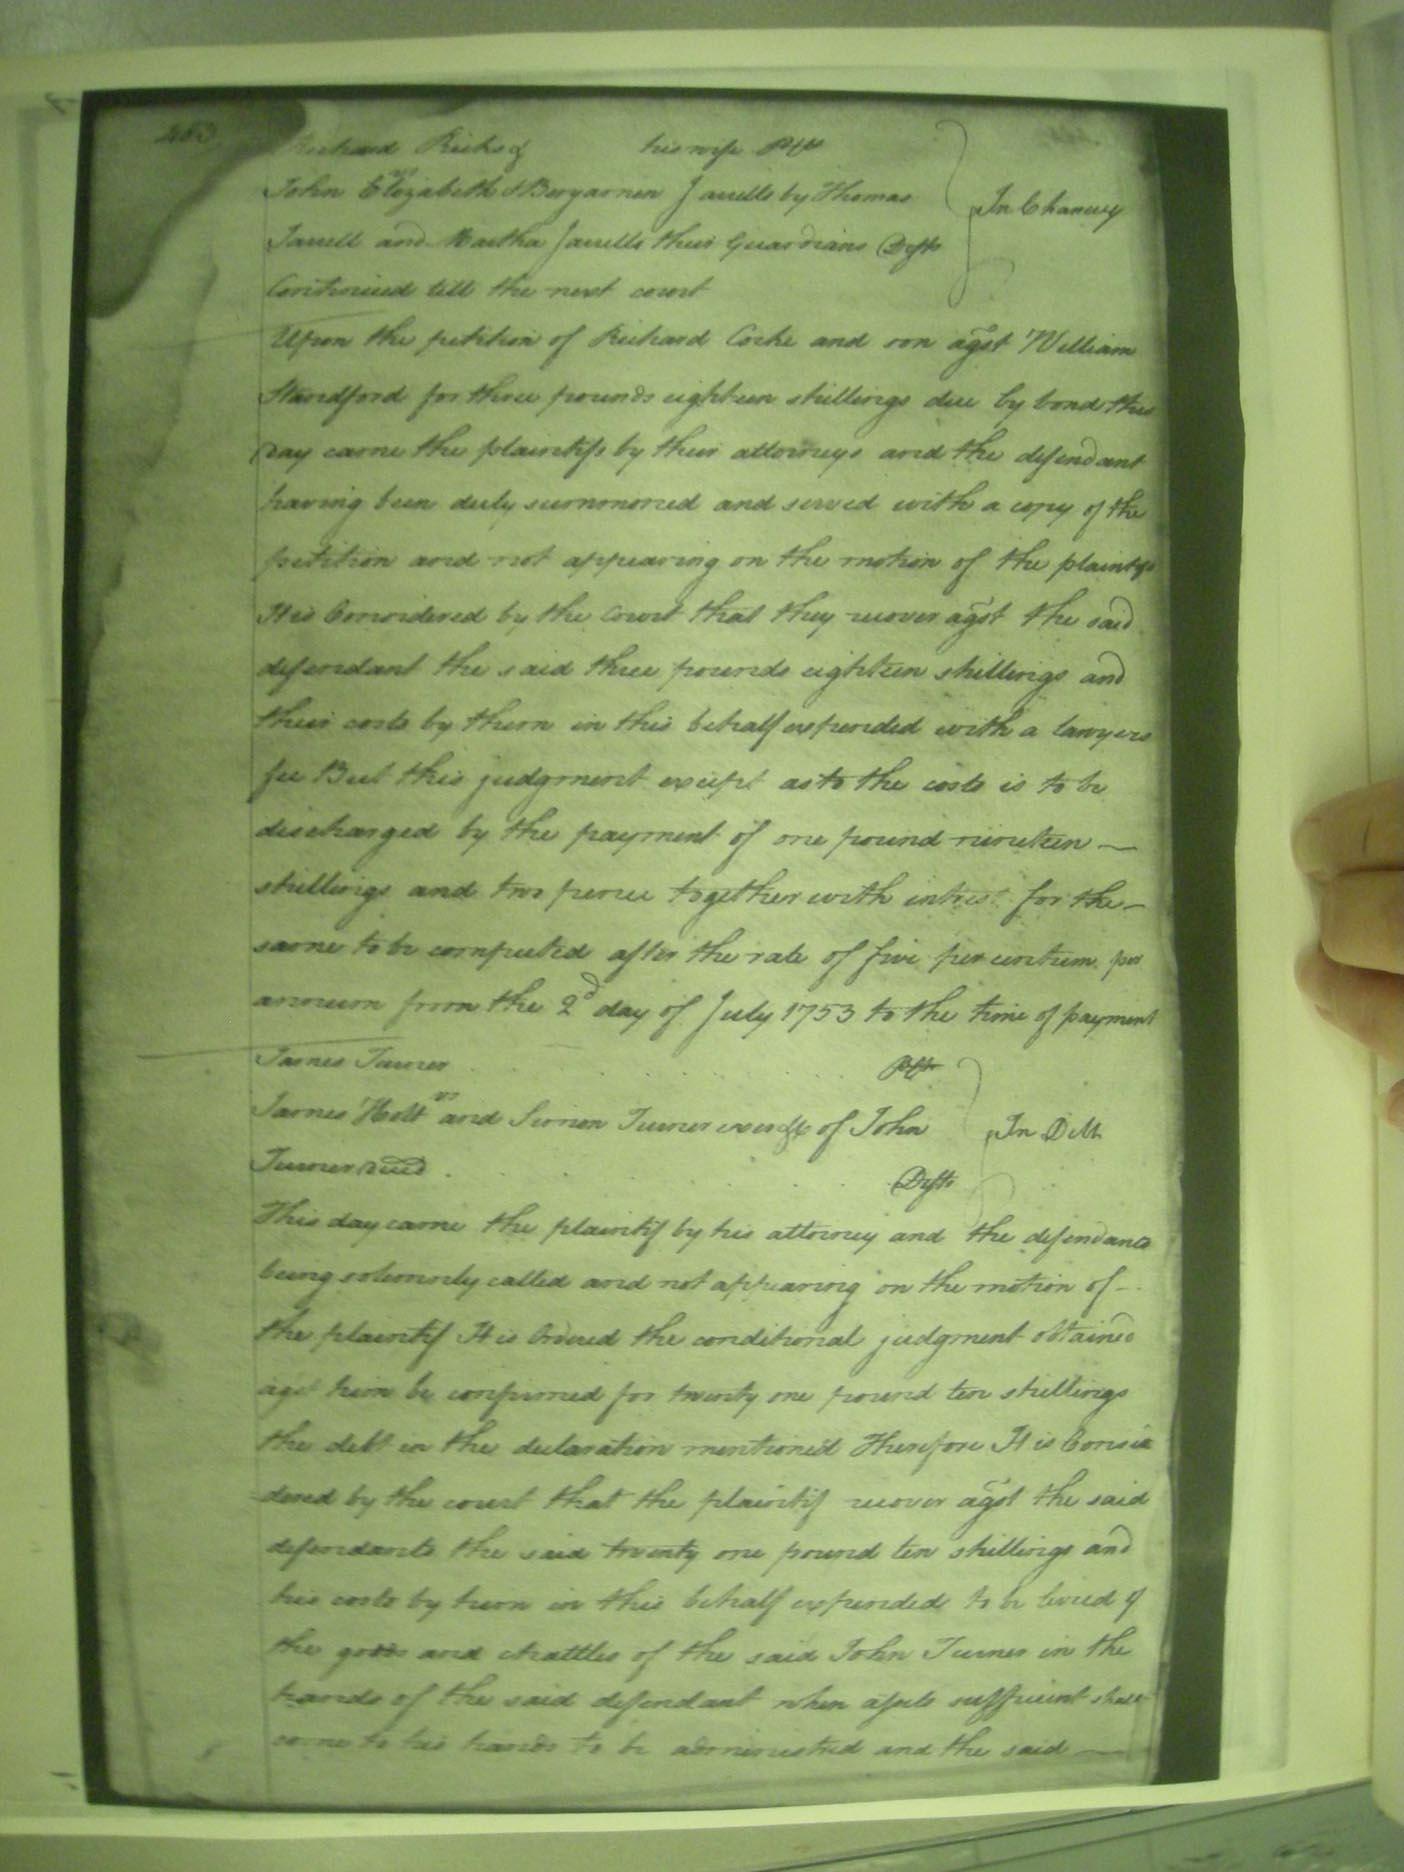 463
Richard Ricks & his wife Plts
vs
John Elizabeth & Benjamen Jarrells by Thomas
Jarrell and Martha Jarrells their Guardians Defts
In Chancery
Continued till the next court
Upon the petition of Richard Cocke and son agst William
Standford for three pounds eighteen shillings due by bond this
Day came the plaintifs by their attorneys and the defendant
having been duly summoned and served with a copy of the
petition and not appearing on the motion of the plaintifs
It is Considered by the Court that they recover agst the said
defendant the said three pounds eighteen shillings and
their costs by them in this behalf expended with a lawyers
fee But this judgment except as to the costs is to be
discharged by the payment of one pound nineteen —
shillings and two pence together with intrest for the —
same to be computed after the rate of five per centum per
annum from the 2d day of July 1753 to the time of payment
James Turner Plt
vs
James Holt and Simon Turner exers &c of John
Turner decd Defts
In Debt
This day came the plaintif by his attorney and the defendants
being solemnly called and not appearing on the motion of —
the plaintif It is Ordered the conditional judgment obtained
agst him be confirmed for twenty one pound ten shillings
the debt in the declaration mentioned Therefore It is Consi
dered by the court that the plaintif recover agst the said
defendants the said twenty one pound ten shillings and
his costs by him in this behalf expended to be levied of
the goods and chattles of the said John Turner in the
hands of the said defendant when assets sufficient shall
come to his hands to be administred and the said —